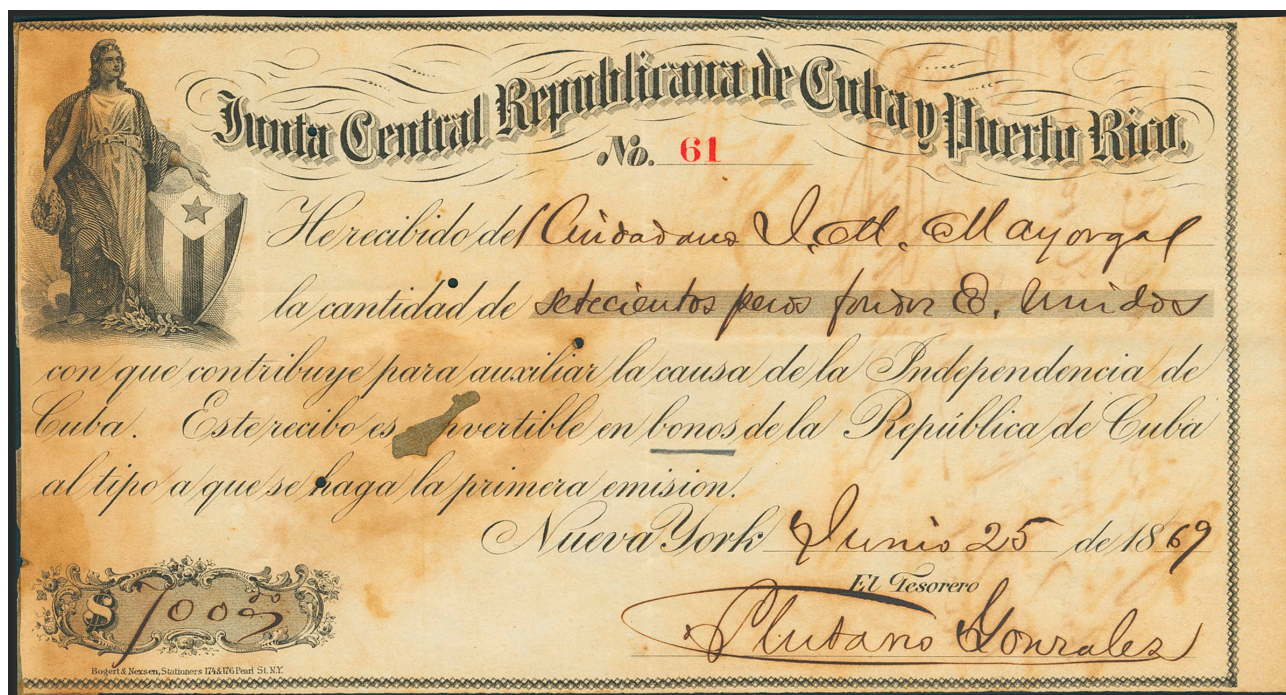 Junta Central Republicana de Cuba y Puerto Rico.
No. 61
He recibido del Ciudadano J. M. Mayorga
la cantidad de setecientos pesos fondos E. Unidos
con que contribuye para auxiliar la causa de la Independencia de
Cuba. Este recibo es vertible en bonos de la República de Cuba
al tipo a que se haga la primera emision.
Nueva York Junio 25 de 1869
El Tesorero
Plutarco Gonzales
$ 700 00
Bogert & Nexsen, Stationers 174 & 176 Pearl St. N.Y.